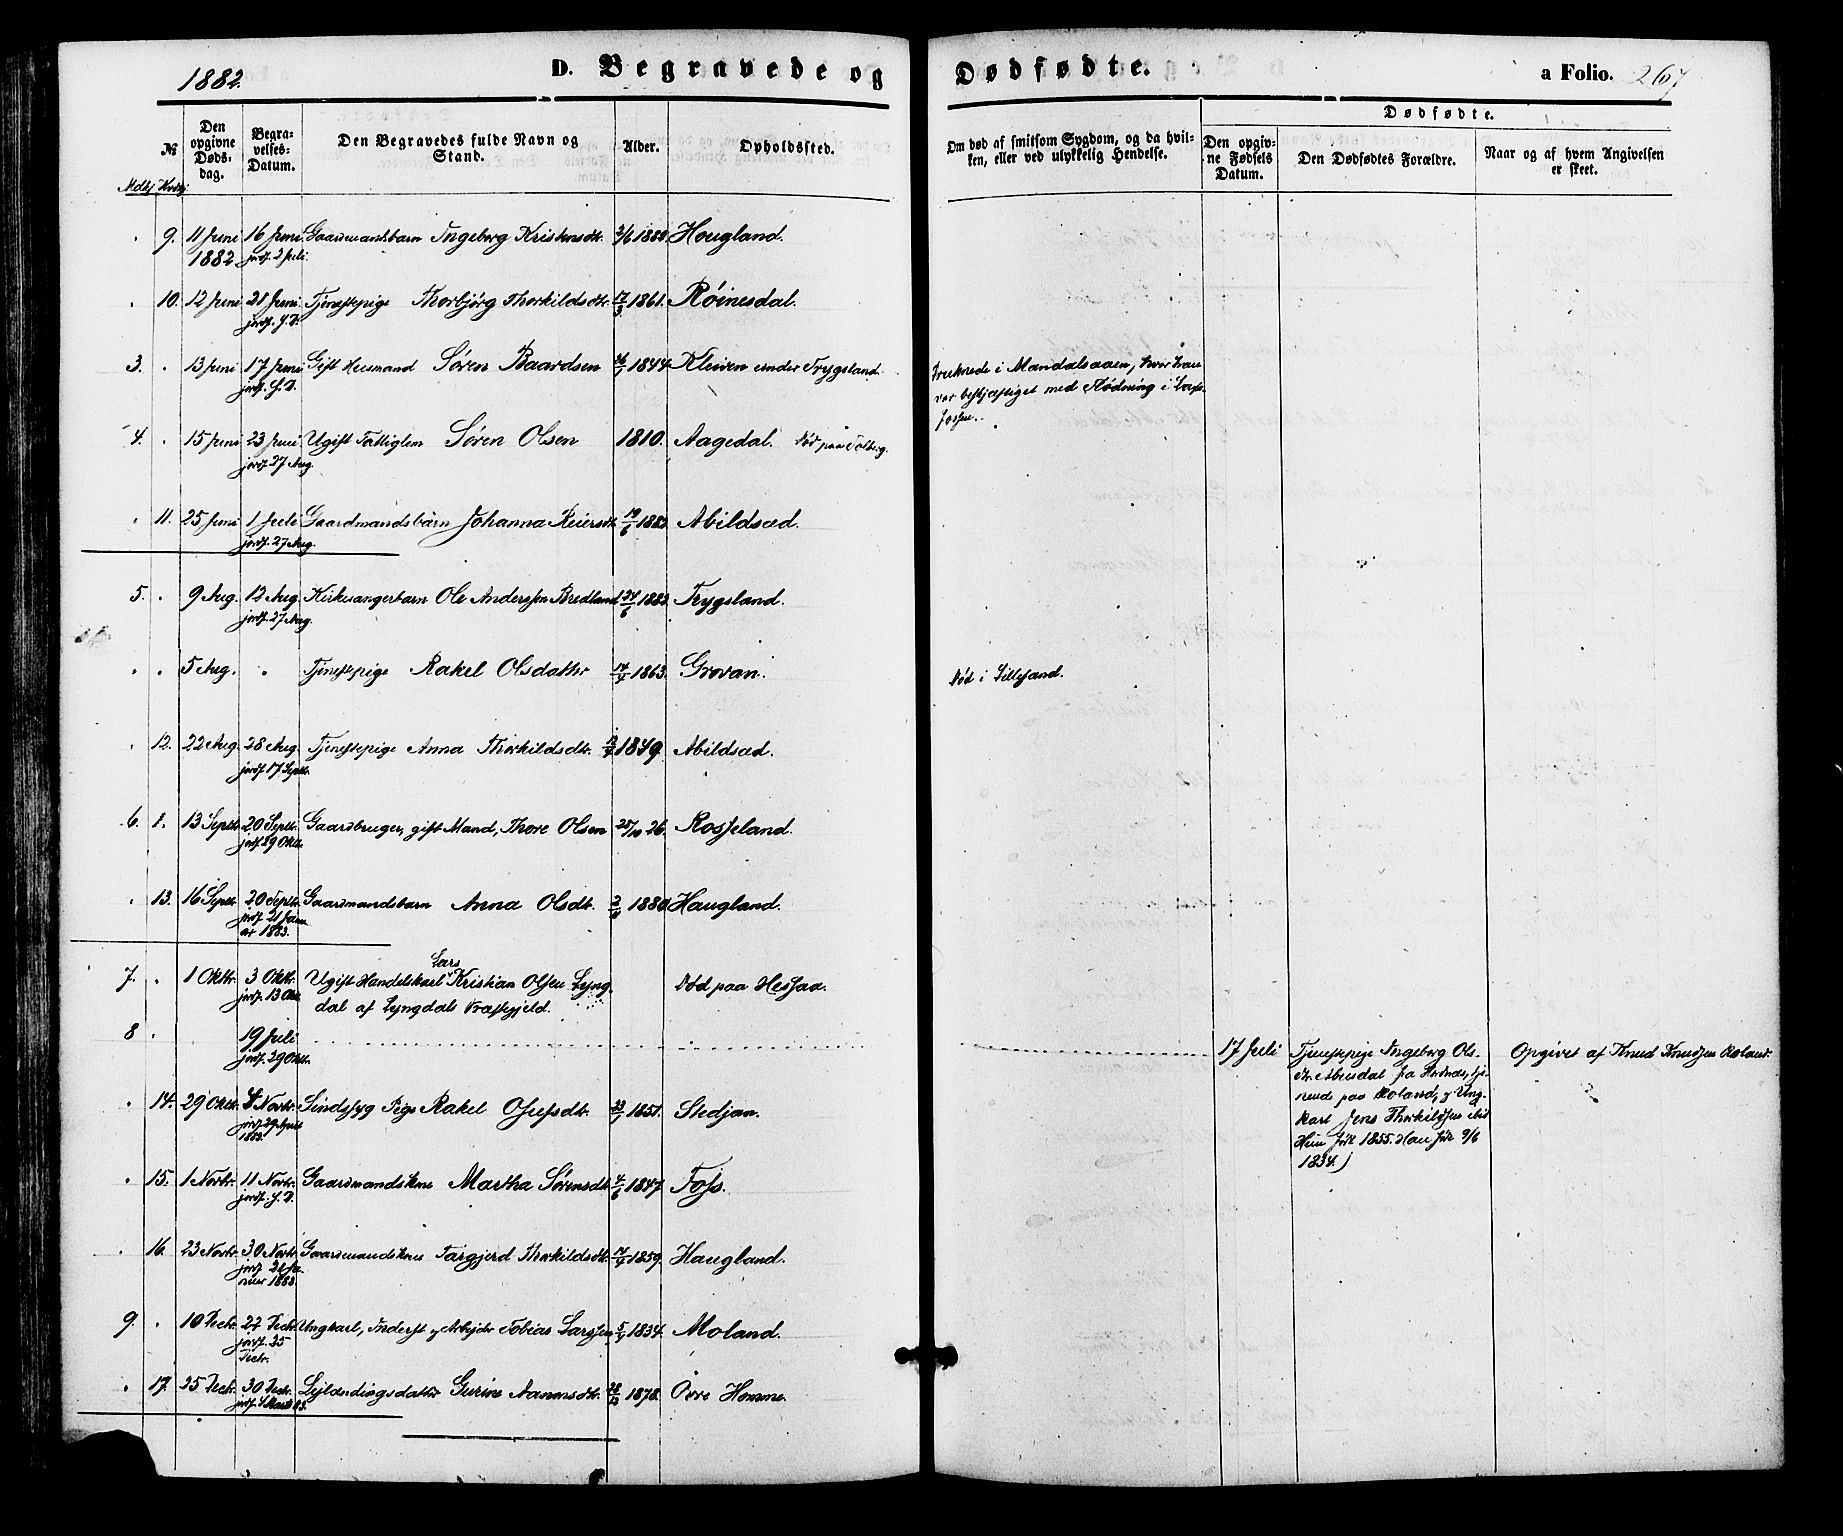 1882.
D. Begravede og
Dødfødte.
a Folio. 267
№
Den opgivne Døds-dag.
Begra-velses-Datum.
Den Begravedes fulde Navn og Stand.
Alder.
Opholdssted.
Om død af smitsom Sygdom, og da hvil-
ken, eller ved ulykkelig Hendelse.
Dødfødte.
Den opgiv-ne Fødsels Datum.
Den Dødfødtes Forældre.
Naar og af hvem Angivelsen er skeet.
9. 11 Juni 1882 16 Juni. jordf. 2 Juli. Gaardmandsbarn Ingeborg Kristensdtr. 2/6 1882 Hougland.
10. 12 Juni 21 Juni. jordf. s. D. Tjenestepige Thorbjørg Thorkildsdtr. 17/3 1861. Røinesdal.
3. 13 Juni 17 Juni jordf. s. D. Gift Husmand Søren Baardsen 1844 Kleiven under Trygsland.
Druknede i Mandalsaaen, hvor han
var beskjæftiget med Flødning i
Fossen.
4. 15 Juni 23 Juni jordf. 27 Aug. Ugift Fattiglem Søren Olsen 1810. Aagedal. død paa
11. 25 Juni 1 Juli jordf. 27 Aug. Gaardmandsbarn Johanna Reiersdtr. 19/6 1882. Abildsæd.
5. 9 Aug. 12 Aug jordf. 27 Aug. Kirkesangerbarn Ole Anderssen Bredland 24/6 1882. Trygsland.
5 Aug. Tjenestepige Rakel Olsdatter 14/4 1863. Grovan.
død i Lillesand.
12. 22 Aug. 28 Aug. jordf. 17 Septr. Tjenestepige Anna Thorkildsdtr. 1849. Abildsæd.
6. 1. 13 Septr. 20 Septr. jordf. 29 Oktr. Gaardbruger, gift Mand, Thore Olsen 26. Rosseland.
13. 16 Septr 20 Septr. jordf. 21 Janu-ar 1883. Gaardmandsbarn Anna Olsdt. 1880 Haugland.
7. 1 Oktr. 3 Oktr. jordf. 13 Okt. Ugift Handelskarl Lars Kristian Olsen Lyng-
dal af Lyngdals Præstegjeld. død paa Hessaa.
8 19 Juli jordf. 29 Oktr.
17 Juli
Tjenestepige Ingeborg Ols-
dtr. Abusdal fra Hornnes, tje-
nende paa Roland, og Ung-
karl Jens Thorkildsen ibid
Hun født 1855. Han født 9/6
1834.)
Opgivet af Knud Knudsen Roland.
14. 29 Oktr. 4 Novbr. jordf. 29 April 1883. Sindssyg Pige Rakel Osufsdt. 1851. Stedjan.
15. 1 Novbr. 11 Novbr. jordf. s. D. Gaardmandskone Martha Sørensdt. 4/6 1847. Foss.
16. 23 Novbr. 30 Novbr. jordf 21 Ja-nuar 1883. Gaardmandskone Targjerd Thorkildsdtr. 1859. Haugland.
9. 10 Decbr. 22 Decbr. jordf. 25 Decbr. Ungkarl, Inderst og Arbejder Tobias Larssen, 1834. Moland.
17. 25 Decbr. 30 Decbr. Lejlændingsdatter Gurine Aanensdtr. 1878. Øvre Homme.